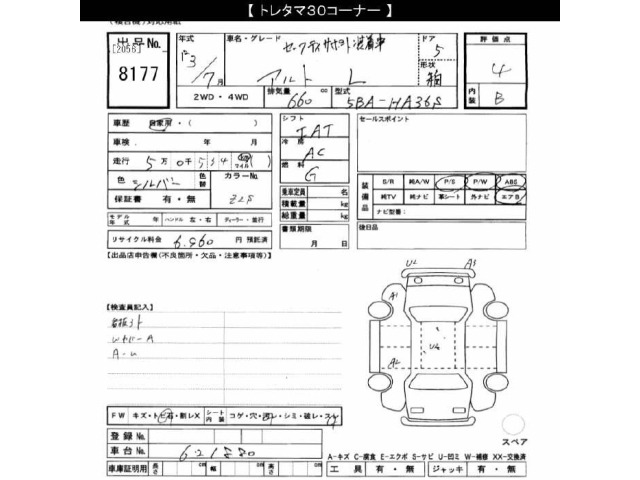 【 トレタマ30コーナー 】
出品No.
[2056]
8177
年式
R3/7月
車名・グレード
セーフティサポート装着車
アルト L
ドア
5
形状
箱
評価点
4
内装
B
2WD・4WD
排気量
660 cc
型式
5BA-HA36S
車歴 自家用・( )
車検 年 月
走行 5万0千534 km マイル
色 シルバー 色替
カラーNo.
Z2S
保証書 有・無
モデル年式 年 ハンドル 左・右 ディーラー・並行
リサイクル料金 6,960 円 預託済
シフト
IAT
冷房
AC
燃料
G
乗車定員 名
積載量 kg
総重量 kg
書類期限
月 日
セールスポイント
装備品
S/R 純A/W P/S P/W ABS
純TV 純ナビ 革シート 外ナビ エアB
ナビ型番:
後日品
【出品店申告欄(不良箇所・欠品・注意事項等)】
【検査員記入】
A-U
U2 A3
A1
A2
U4
FW キズ・トビ石・割レX シート内装 コゲ・穴・汚レ・シミ・破レ・スレ
登録No.
車台No. 621880
車庫証明用 長さ cm 幅 cm 高さ cm
スペア
A-キズ C-腐食 E-エクボ S-サビ U-凹ミ W-補修 XX-交換済
工具 有・無 ジャッキ 有・無